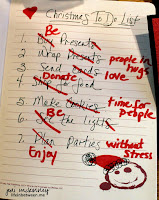 Christmas To Do List
Be
1. Buy Presents
2. Wrap Presents people in hugs
3. Send Cards love
Donate
4. Shop for food
5. Make Cookies time for people
Be
6. See the lights
7. Plan Parties without stress
Enjoy